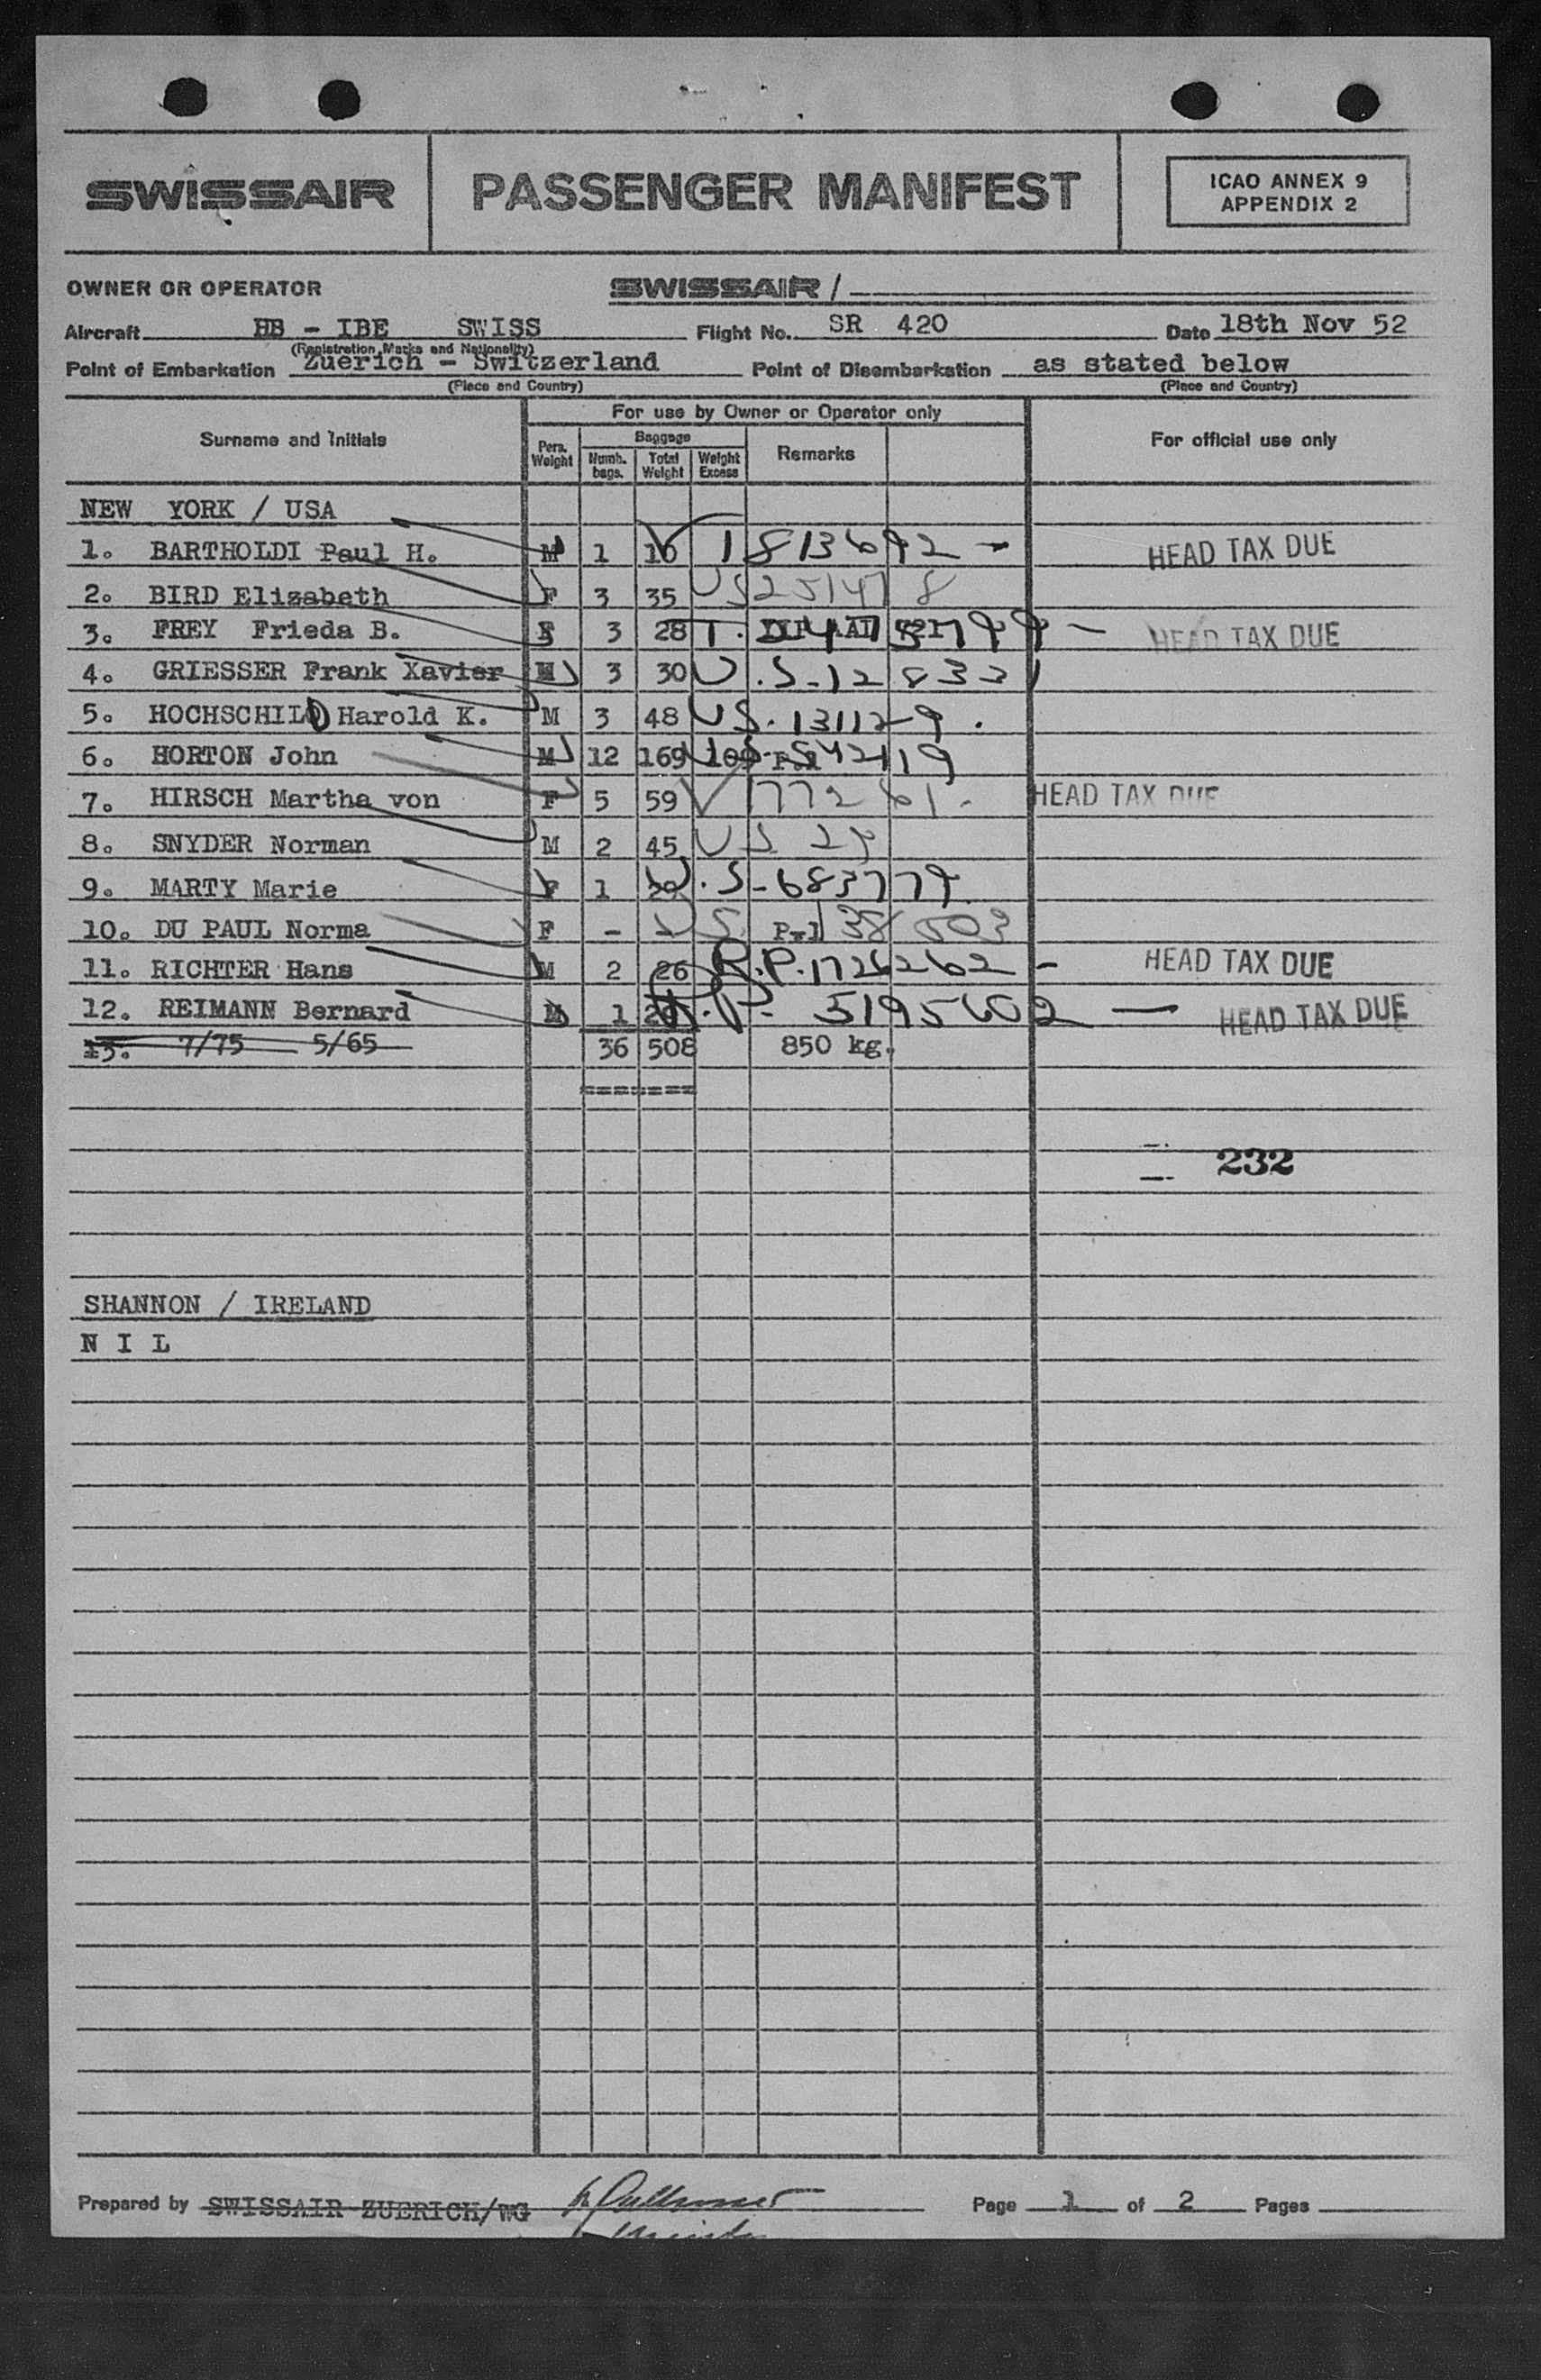 SWISSAIR PASSENGER MANIFEST ICAO ANNEX 9
APPENDIX 2
OWNER OR OPERATOR SWISSAIR /
Aircraft HB - IBE SWISS Flight No. SR 420 Date 18th Nov 52
(Registration Marks and Nationality)
Point of Embarkation Zuerich - Switzerland Point of Disembarkation as stated below
(Place and Country) (Place and Country)
For use by Owner or Operator only
Surname and Initials Pers. Weight Baggage Remarks For official use only
Numb. bags. Total Weight Weight Excess
NEW YORK / USA
1. BARTHOLDI Paul H. M 1 10 1813692 - HEAD TAX DUE
2. BIRD Elizabeth F 3 35 US 251478
3. FREY Frieda B. F 3 28 T. - HEAD TAX DUE
4. GRIESSER Frank Xavier M 3 30 U.S-12833
5. HOCHSCHILD Harold K. M 3 48 US. 131129.
6. HORTON John M 12 169 542119
7. HIRSCH Martha von F 5 59 V 177261. HEAD TAX DUE
8. SNYDER Norman M 2 45 US 29
9. MARTY Marie F 1 U.S-683779
10. DU PAUL Norma F - - US. P-1 38503
11. RICHTER Hans M 2 26 R.P. 1726262 - HEAD TAX DUE
12. REIMANN Bernard M 1 R.P. 5195602 - HEAD TAX DUE
13. 7/75 5/65 36 508 850 kg.
=======
232
SHANNON / IRELAND
N I L
Prepared by SWISSAIR ZUERICH/WG Page 1 of 2 Pages